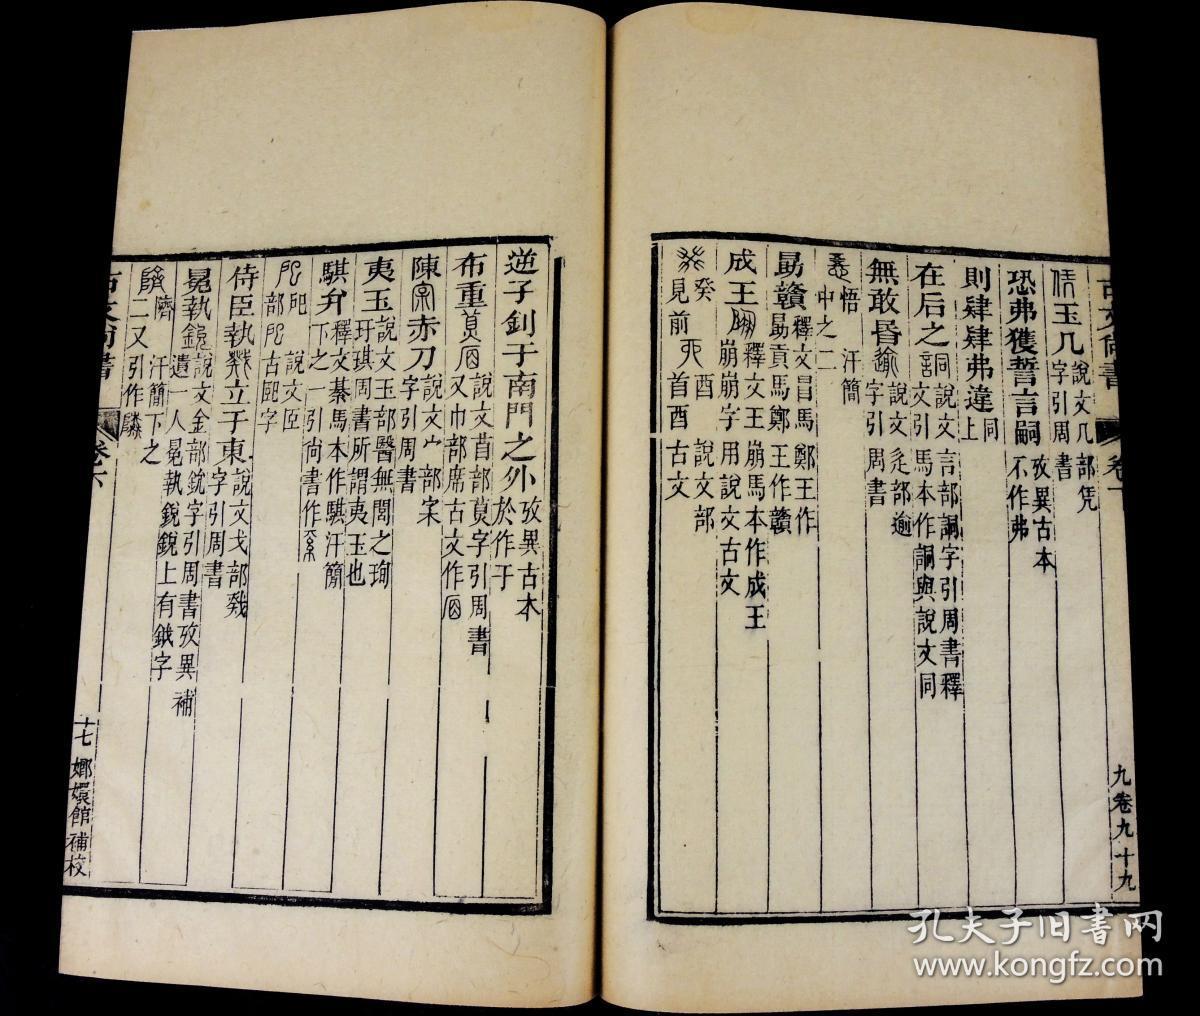 古文尚書
卷十
九卷九十九
玉几 說文几部凭
字引周書
恐弗獲誓言嗣 攷異古本
不作弗
則肄肄弗違 同上
在后之詷 說文言部詷字引周書釋
文引馬本作詷與說文同
無敢昬逾 說文辵部逾
字引周書
悟 汗簡
中之二
勗贛 釋文冒馬鄭王作
勗貢馬鄭王作贛
成王崩 釋文王崩馬本作成王
崩崩字用說文古文
癸 酉 說文部
見前 首酉古文
逆子釗于南門之外 攷異古本
於作于
布重莧席 說文苜部莧字引周書
又巾部席古文作
陳宩赤刀 說文宀部宩
字引周書
夷玉 說文玉部醫無閭之珣
玗琪周書所謂夷玉也
騏弁 釋文綦馬本作騏汗簡
下之一引尚書作
戺 說文𦣞
部戺古𦣞字
侍臣執戣立于東 說文戈部戣
字引周書
冕執鈗 說文金部鈗字引周書攷異補
遺一人冕執銳銳上有鈗字
隮 汗簡下之
二又引作
古文尚書
卷六
十七
嫏嬛館補校
孔夫子旧书网
www.kongfz.com